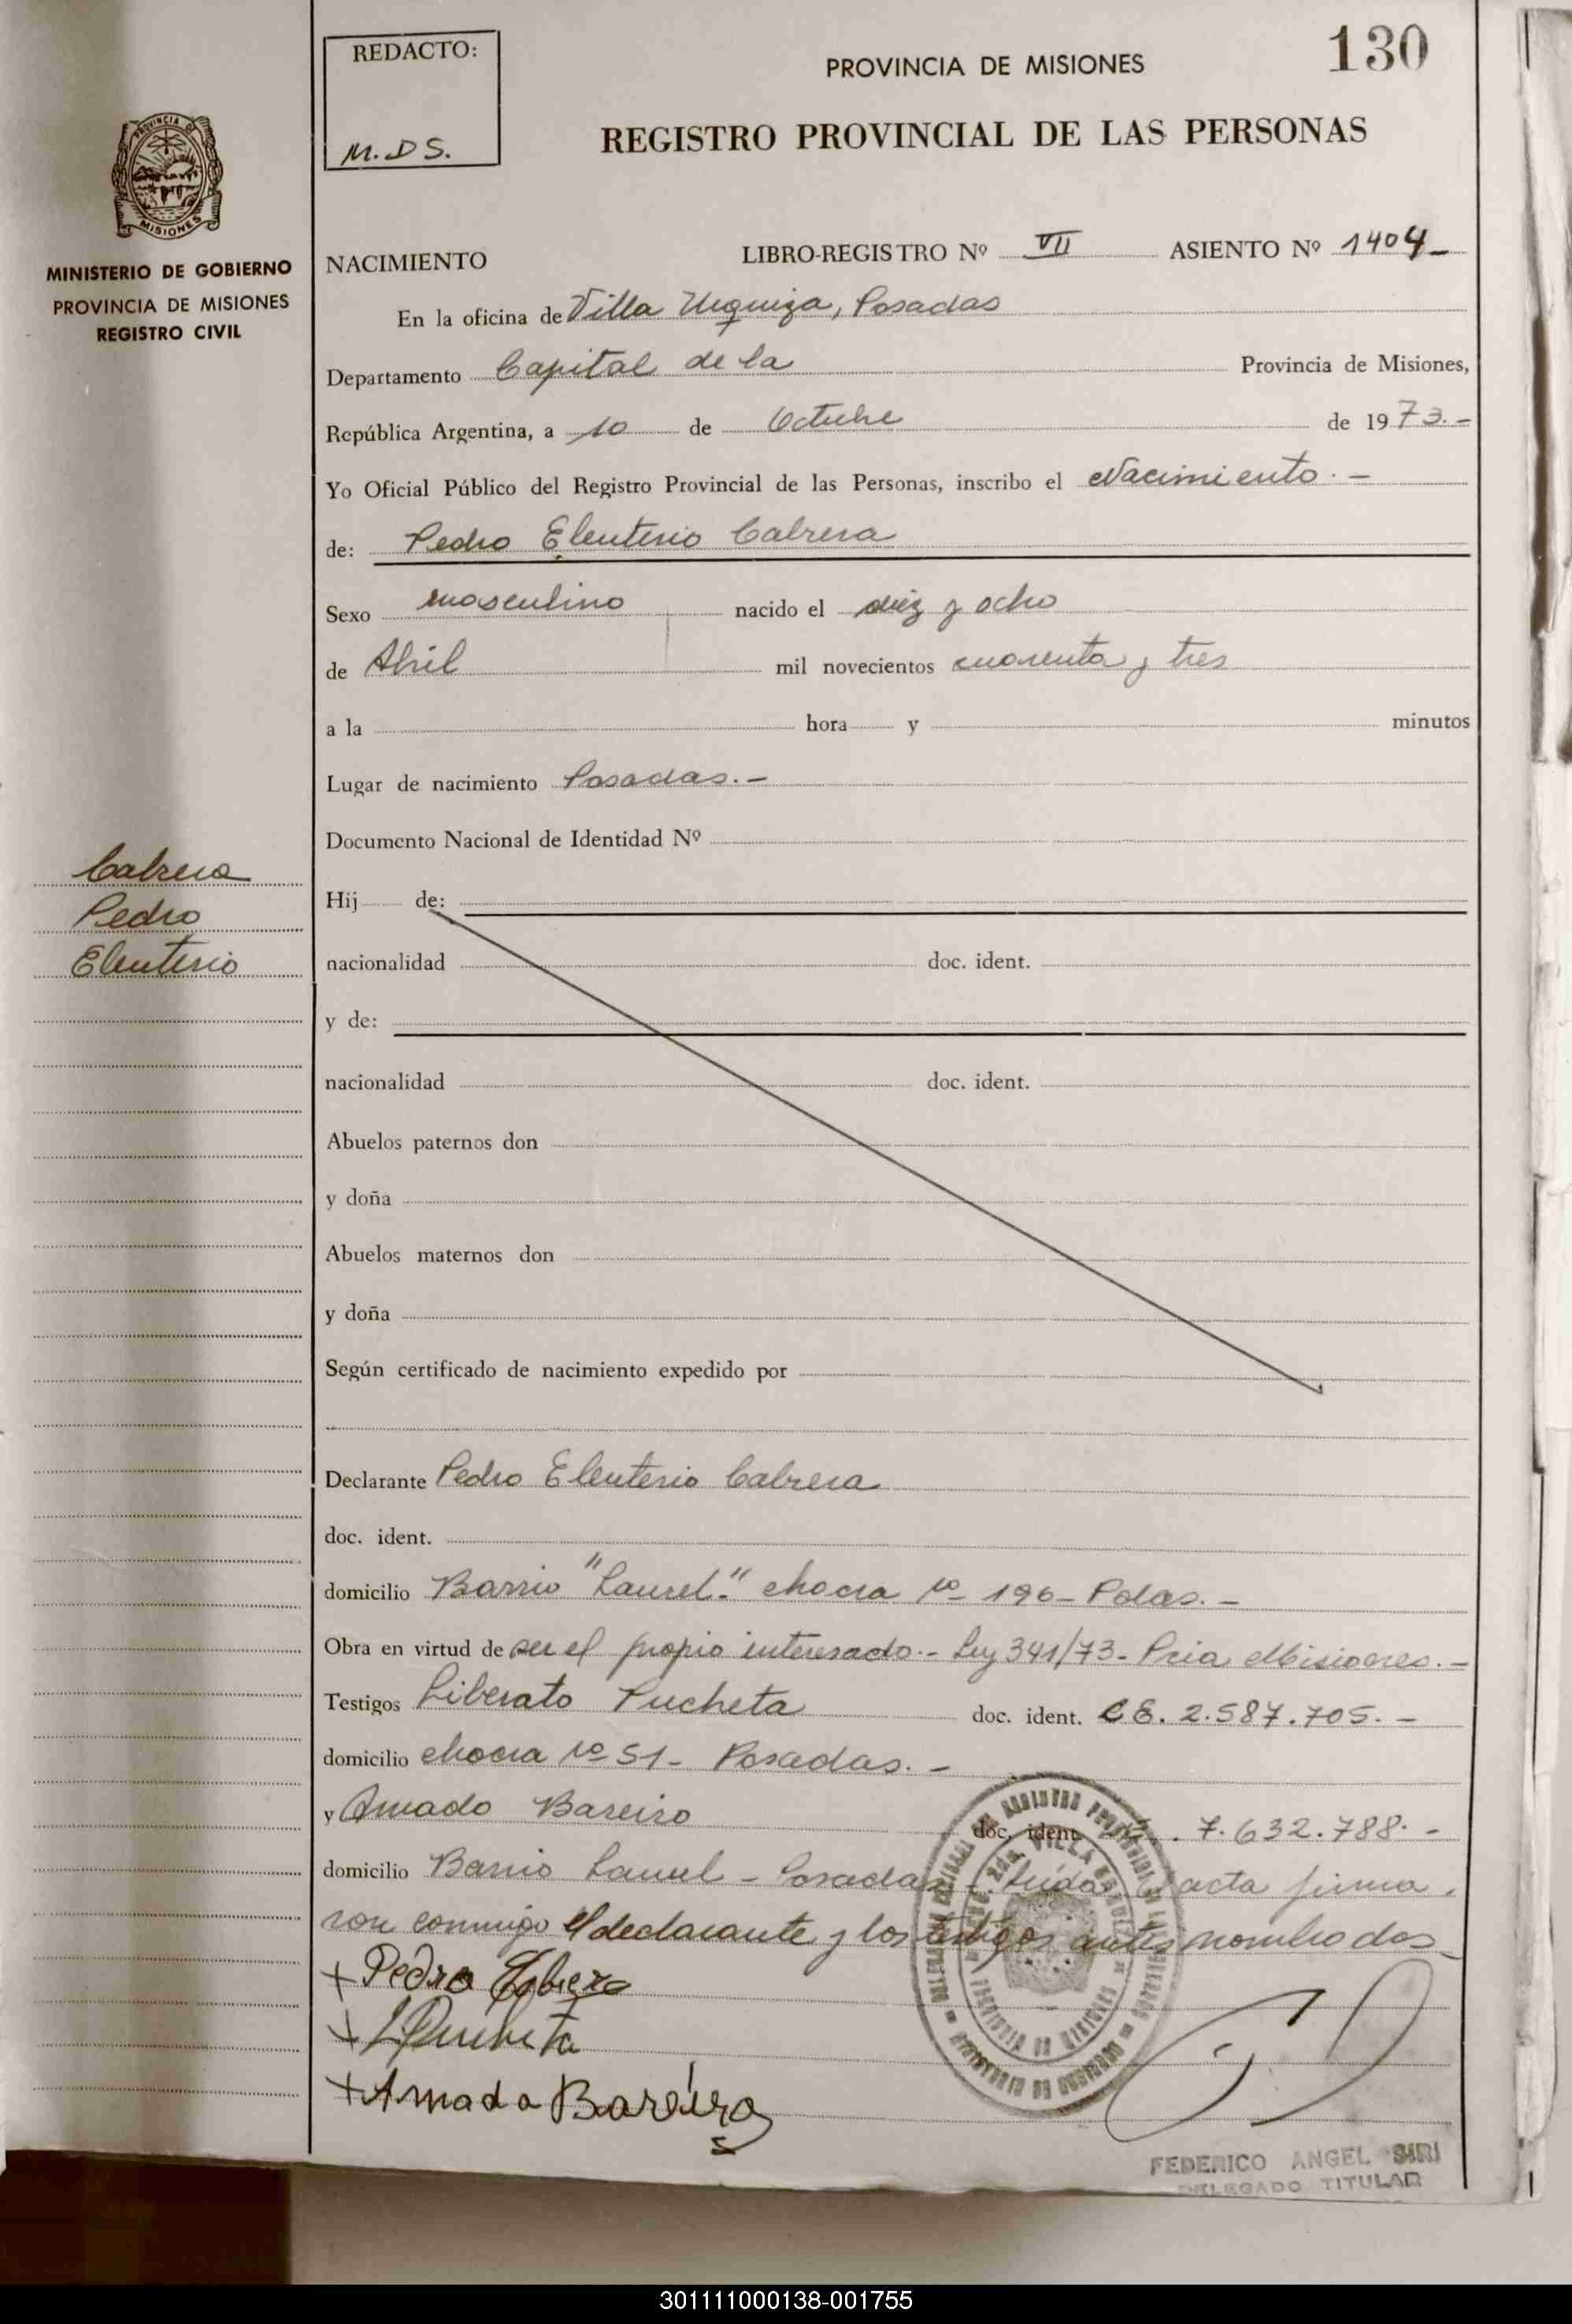 REDACTO:
M.D S.
130
PROVINCIA DE MISIONES
REGISTRO PROVINCIAL DE LAS PERSONAS
PROVINCIA DE
MISIONES
MINISTERIO DE GOBIERNO
PROVINCIA DE MISIONES
REGISTRO CIVIL
NACIMIENTO LIBRO-REGISTRO Nº VII ASIENTO Nº 1404-
En la oficina de Villa Urquiza, Posadas
Departamento Capital de la Provincia de Misiones,
República Argentina, a 10 de Octubre de 1973.-
Yo Oficial Público del Registro Provincial de las Personas, inscribo el Nacimiento.-
de: Pedro Eleuterio Cabrera
Sexo masculino nacido el diez y ocho
de Abril mil novecientos cuarenta y tres
a la hora y minutos
Lugar de nacimiento Posadas.-
Documento Nacional de Identidad Nº
Cabrera
Pedro
Eleuterio
Hij de:
nacionalidad doc. ident.
y de:
nacionalidad doc. ident.
Abuelos paternos don
y doña
Abuelos maternos don
y doña
Según certificado de nacimiento expedido por
Declarante Pedro Eleuterio Cabrera
doc. ident.
domicilio Barrio "Laurel". chacra nº 196- Pdas.-
Obra en virtud de ser el propio interesado.- Ley 341/73- Pcia Misiones.-
Testigos Liberato Pucheta doc. ident. C.E. 2.587.705.-
domicilio chacra nº 51- Posadas.-
y Amado Bareiro doc. ident. 7.632.788.-
domicilio Barrio Laurel - Posadas.- Leida el acta firma.
ron conmigo el declarante y los testigos antes nombrados-
+ Pedro Cabrera
+ L Pucheta
+ Amado Bareiro
FEDERICO ANGEL SIRI
DELEGADO TITULAR
301111000138-001755